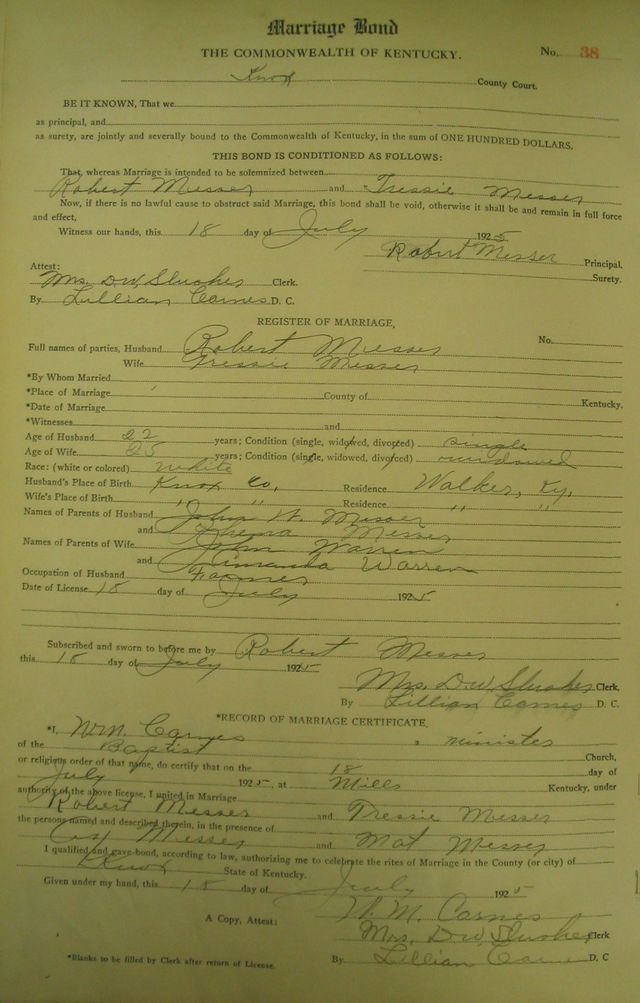 Marriage Bond
THE COMMONWEALTH OF KENTUCKY. No. 38
Knox County Court.
BE IT KNOWN, That we
as principal, and
as surety, are jointly and severally bound to the Commonwealth of Kentucky, in the sum of ONE HUNDRED DOLLARS.
THIS BOND IS CONDITIONED AS FOLLOWS:
That, whereas Marriage is intended to be solemnized between
Robert Messer and Tressie Messer
Now, if there is no lawful cause to obstruct said Marriage, this bond shall be void, otherwise it shall be and remain in full force
and effect,
Witness our hands, this 18 day of July 1925
Robert Messer Principal.
Attest: Surety.
Mrs. D.W. Slusher Clerk.
By Lillian Carnes D. C.
REGISTER OF MARRIAGE,
Full names of parties, Husband Robert Messer No.
Wife Tressie Messer
*By Whom Married
*Place of Marriage County of Kentucky.
*Date of Marriage
*Witnesses and
Age of Husband 22 years; Condition (single, widowed, divorced) single
Age of Wife 25 years; Condition (single, widowed, divorced) widowed
Race: (white or colored) white
Husband's Place of Birth Knox Co, Residence Walker, Ky.
Wife's Place of Birth " " Residence " "
Names of Parents of Husband John W. Messer
and Messer
Names of Parents of Wife John Warren
and Amanda Warren
Occupation of Husband Farmer
Date of License 18 day of July 1925
Subscribed and sworn to before me by Robert Messer
this 18 day of July 1925
Mrs. D.W. Slusher Clerk,
By Lillian Carnes D. C.
*RECORD OF MARRIAGE CERTIFICATE.
*I, Wm. Carnes a minister
of the Baptist Church,
or religious order of that name, do certify that on the 18 day of
July 1925, at Mills Kentucky, under
authority of the above license, I united in Marriage
Robert Messer and Tressie Messer
the persons named and described therein, in the presence of
Messer and Mat Messer
I qualified and gave bond, according to law, authorizing me to celebrate the rites of Marriage in the County (or city) of
Knox State of Kentucky.
Given under my hand, this 18 day of July 1925
W. M. Carnes
A Copy, Attest: Mrs. D.W. Slusher Clerk
*Blanks to be filled by Clerk after return of License. By Lillian Carnes D. C